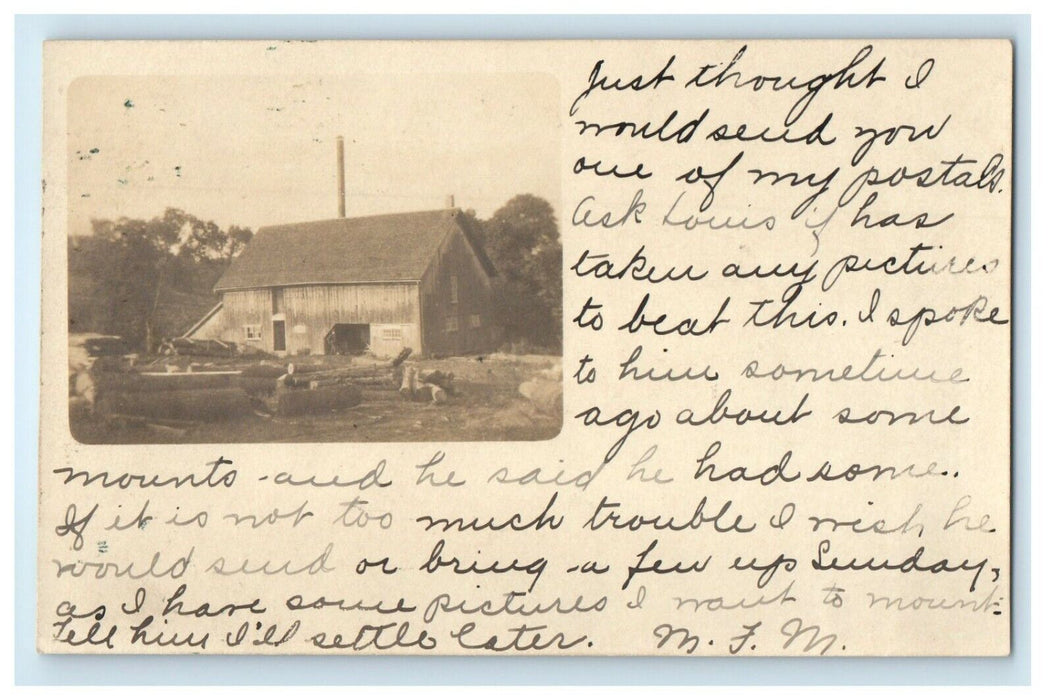 Just thought I
would send you
one of my postals.
Ask Louis if has
taken any pictures
to beat this. I spoke
to him sometime
ago about some
mounts - and he said he had some.
If it is not too much trouble I wish he
would send or bring - a few up Sunday,
as I have some pictures I want to mount.
Tell him I'll settle later. M. F. M.